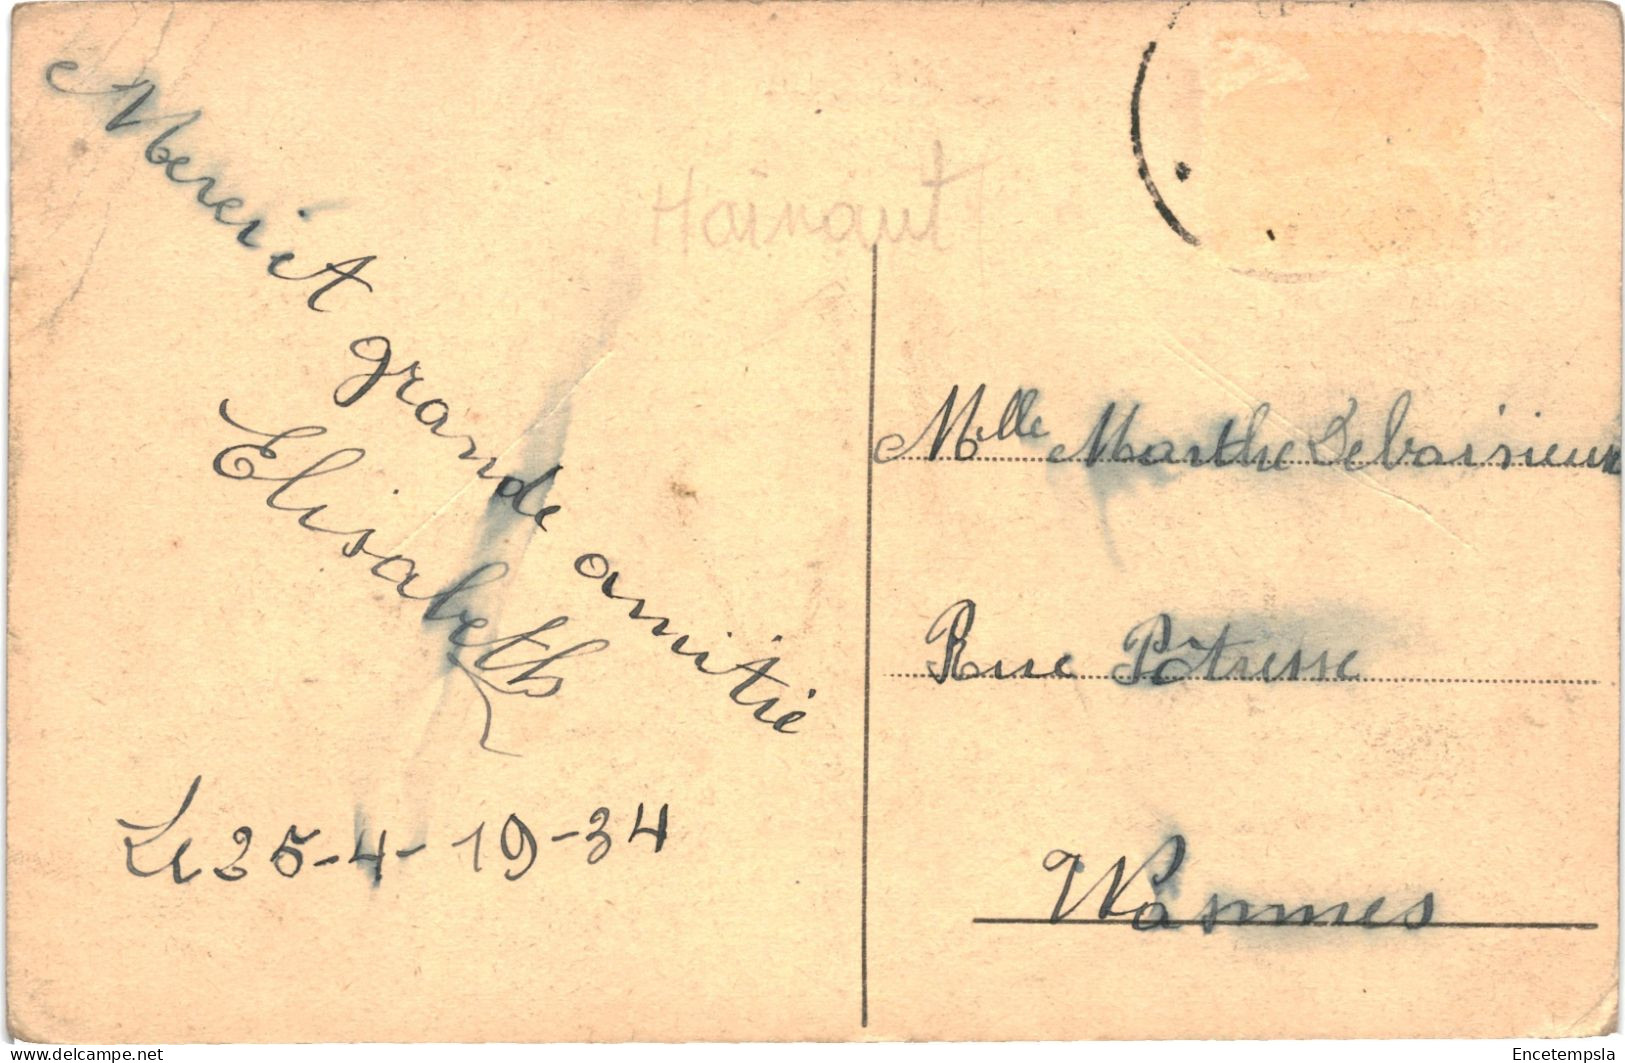 Hainaut
Merci et grande amitié
Elisabeth
Le 25-4-19-34
Mlle Marthe Debaisieux
Rue Pôtresse
Wasmes
www.delcampe.net
Encetempsla